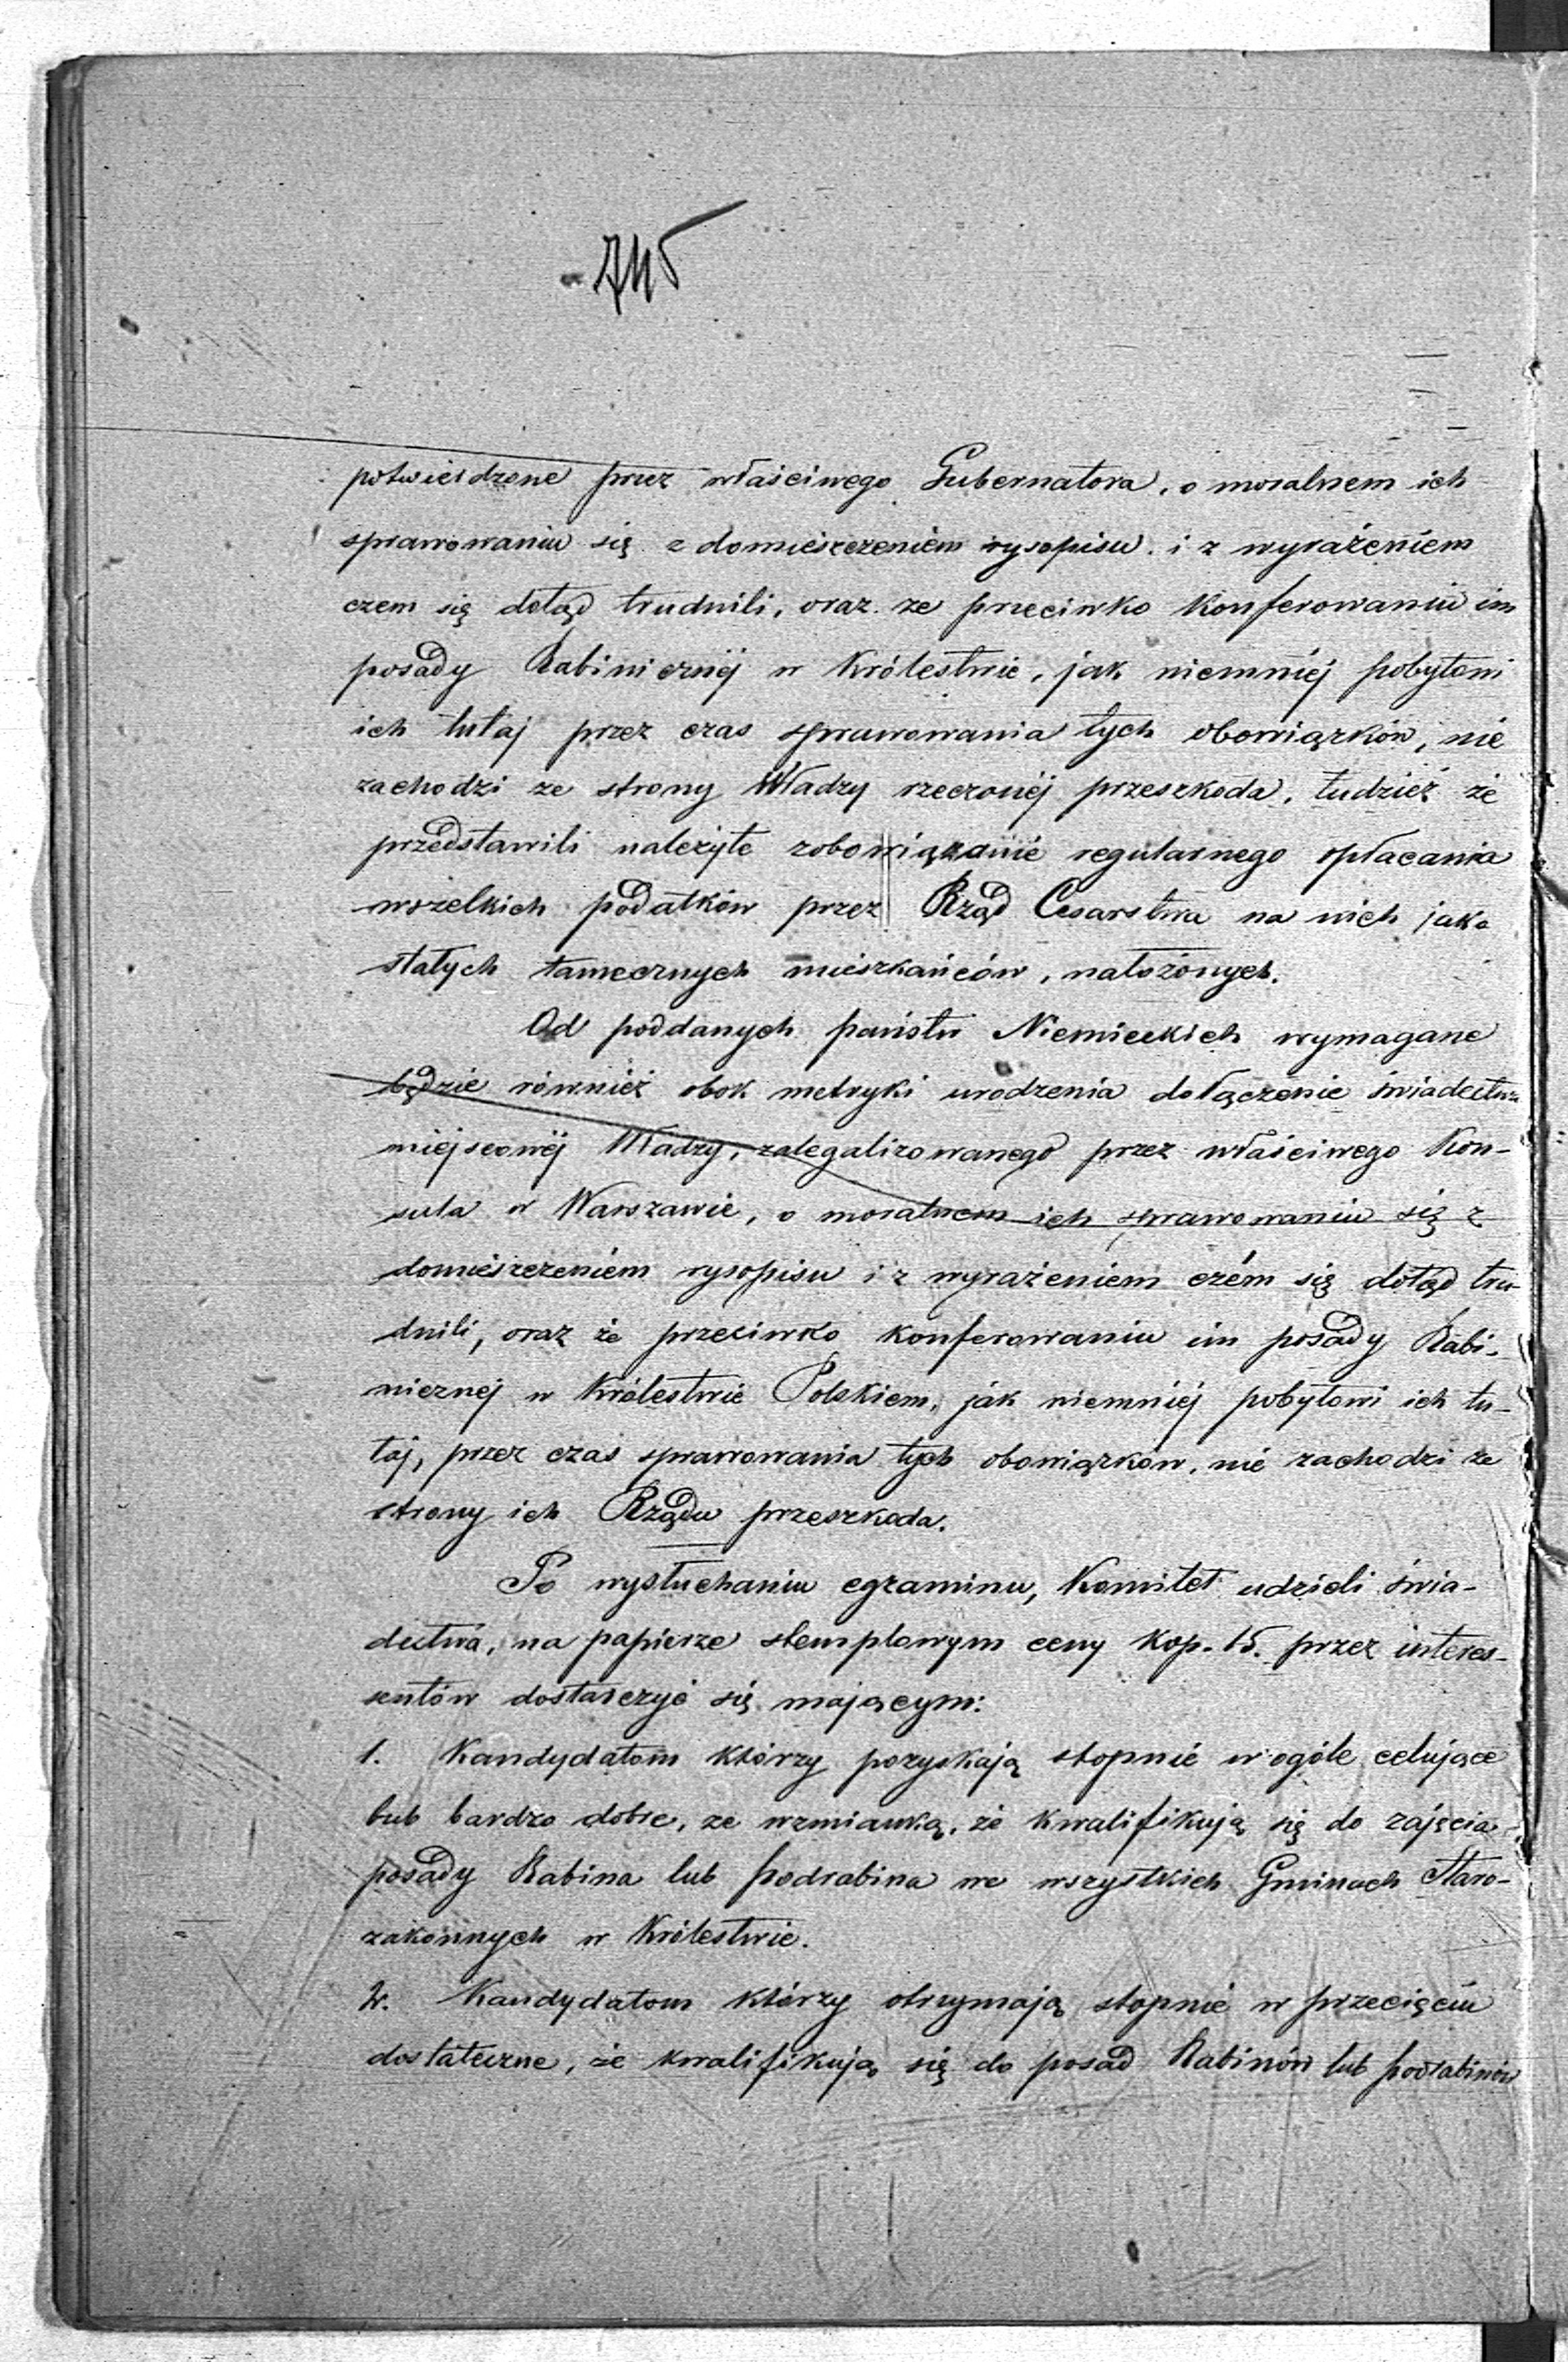 745
potwierdzone przez właściwego Gubernatora, o moralnem ich
sprawowaniu się z domieszczeniem rysopisu. i z wyrażeniem
czem się dotąd trudnili, oraz ze przeciwko konferowaniu im
posady Rabinicznéj w Królestwie, jak niemniéj pobytowi
ich tutaj przez czas sprawowania tych obowiązków, nie
zachodzi ze strony Władzy rzeczonéj przeszkoda, tudzież że
przedstawili należyte zobowiązanie regularnego opłacania
wszelkich podatków przez Rząd Cesarstwa na nich jako
stałych tamecznych mieszkańców, nałożonych.
Od poddanych państw Niemieckich wymagane
będzie również obok metryki urodzenia dołączenie świadectwa
miejscowéj Władzy, zalegalizowanego przez właściwego Kon-
sula w Warszawie, o moralnem ich sprawowaniu się z
domieszczeniem rysopisu i z wyrażeniem czém się dotąd tru-
dnili, oraz że przeciwko konferowaniu im posady Rabi-
nicznej w Królestwie Polskiem, jak niemniéj pobytowi ich tu-
taj, przez czas sprawowania tych obowiązków, nie zachodzi ze
strony ich Rządu przeszkoda.
Po wysłuchaniu egzaminu, Komitet udzieli świa-
dectwa, na papierze stemplowym ceny kop. 15. przez interes-
sentów dostarczyć się mającym:
1. Kandydatom którzy pozyskają stopnie w ogóle celujące
lub bardzo dobre, ze wzmianką, że kwalifikują się do zajęcia
posady Rabina lub podrabina we wszystkich Gminach Staro-
zakonnych w Królestwie.
2. Kandydatom którzy otrzymają stopnie w przecięciu
dostateczne, że kwalifikują się do posad Rabinów lub podrabinów